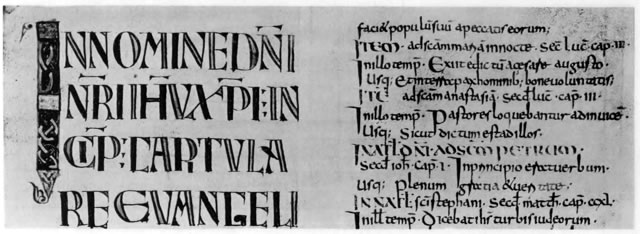 IN NOMINE DN̄I
N̄R̄I IH̄V XP̄I: IN
CIP̄: CARTULA
RE EVANGELI
faci& populūsuū apeccatiseorum;
ITEM · adscammariāmnocte · Secd̄ Luc̄ · cap̄ · III ·
Inillotemp̄ · Exiit edictū acesare augusto ·
Usq; Et in terrap̄axhominib; bonevoluntatis;
ITE · adscamanastasiā · Secd̄ luc̄ · cap̄ · III ·
Inillotemp̄ · Pastores loquebantur adinuicē ·
Usq; Sicut dictum est adillos ·
INNATL DN̄I · ADSCM PETRUM ·
Secd̄ ioh̄ · cap̄ · I · Inprincipio erat uerbum ·
Usq; Plenum gratia & ueritate ·
INNATL · sc̄i stephani · Secd̄ math̄ · cap̄ · ccxl ·
Inill temp̄ · Dicebat ih̄s turbis iudeorum ·